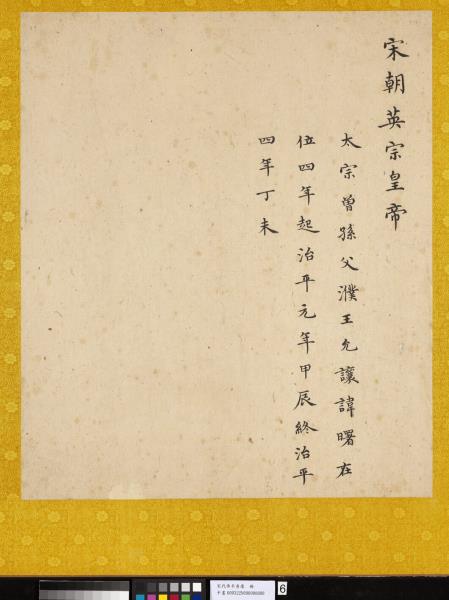 宋朝英宗皇帝
太宗曾孫父濮王允讓諱曙在
位四年起治平元年甲辰終治平
四年丁未
6